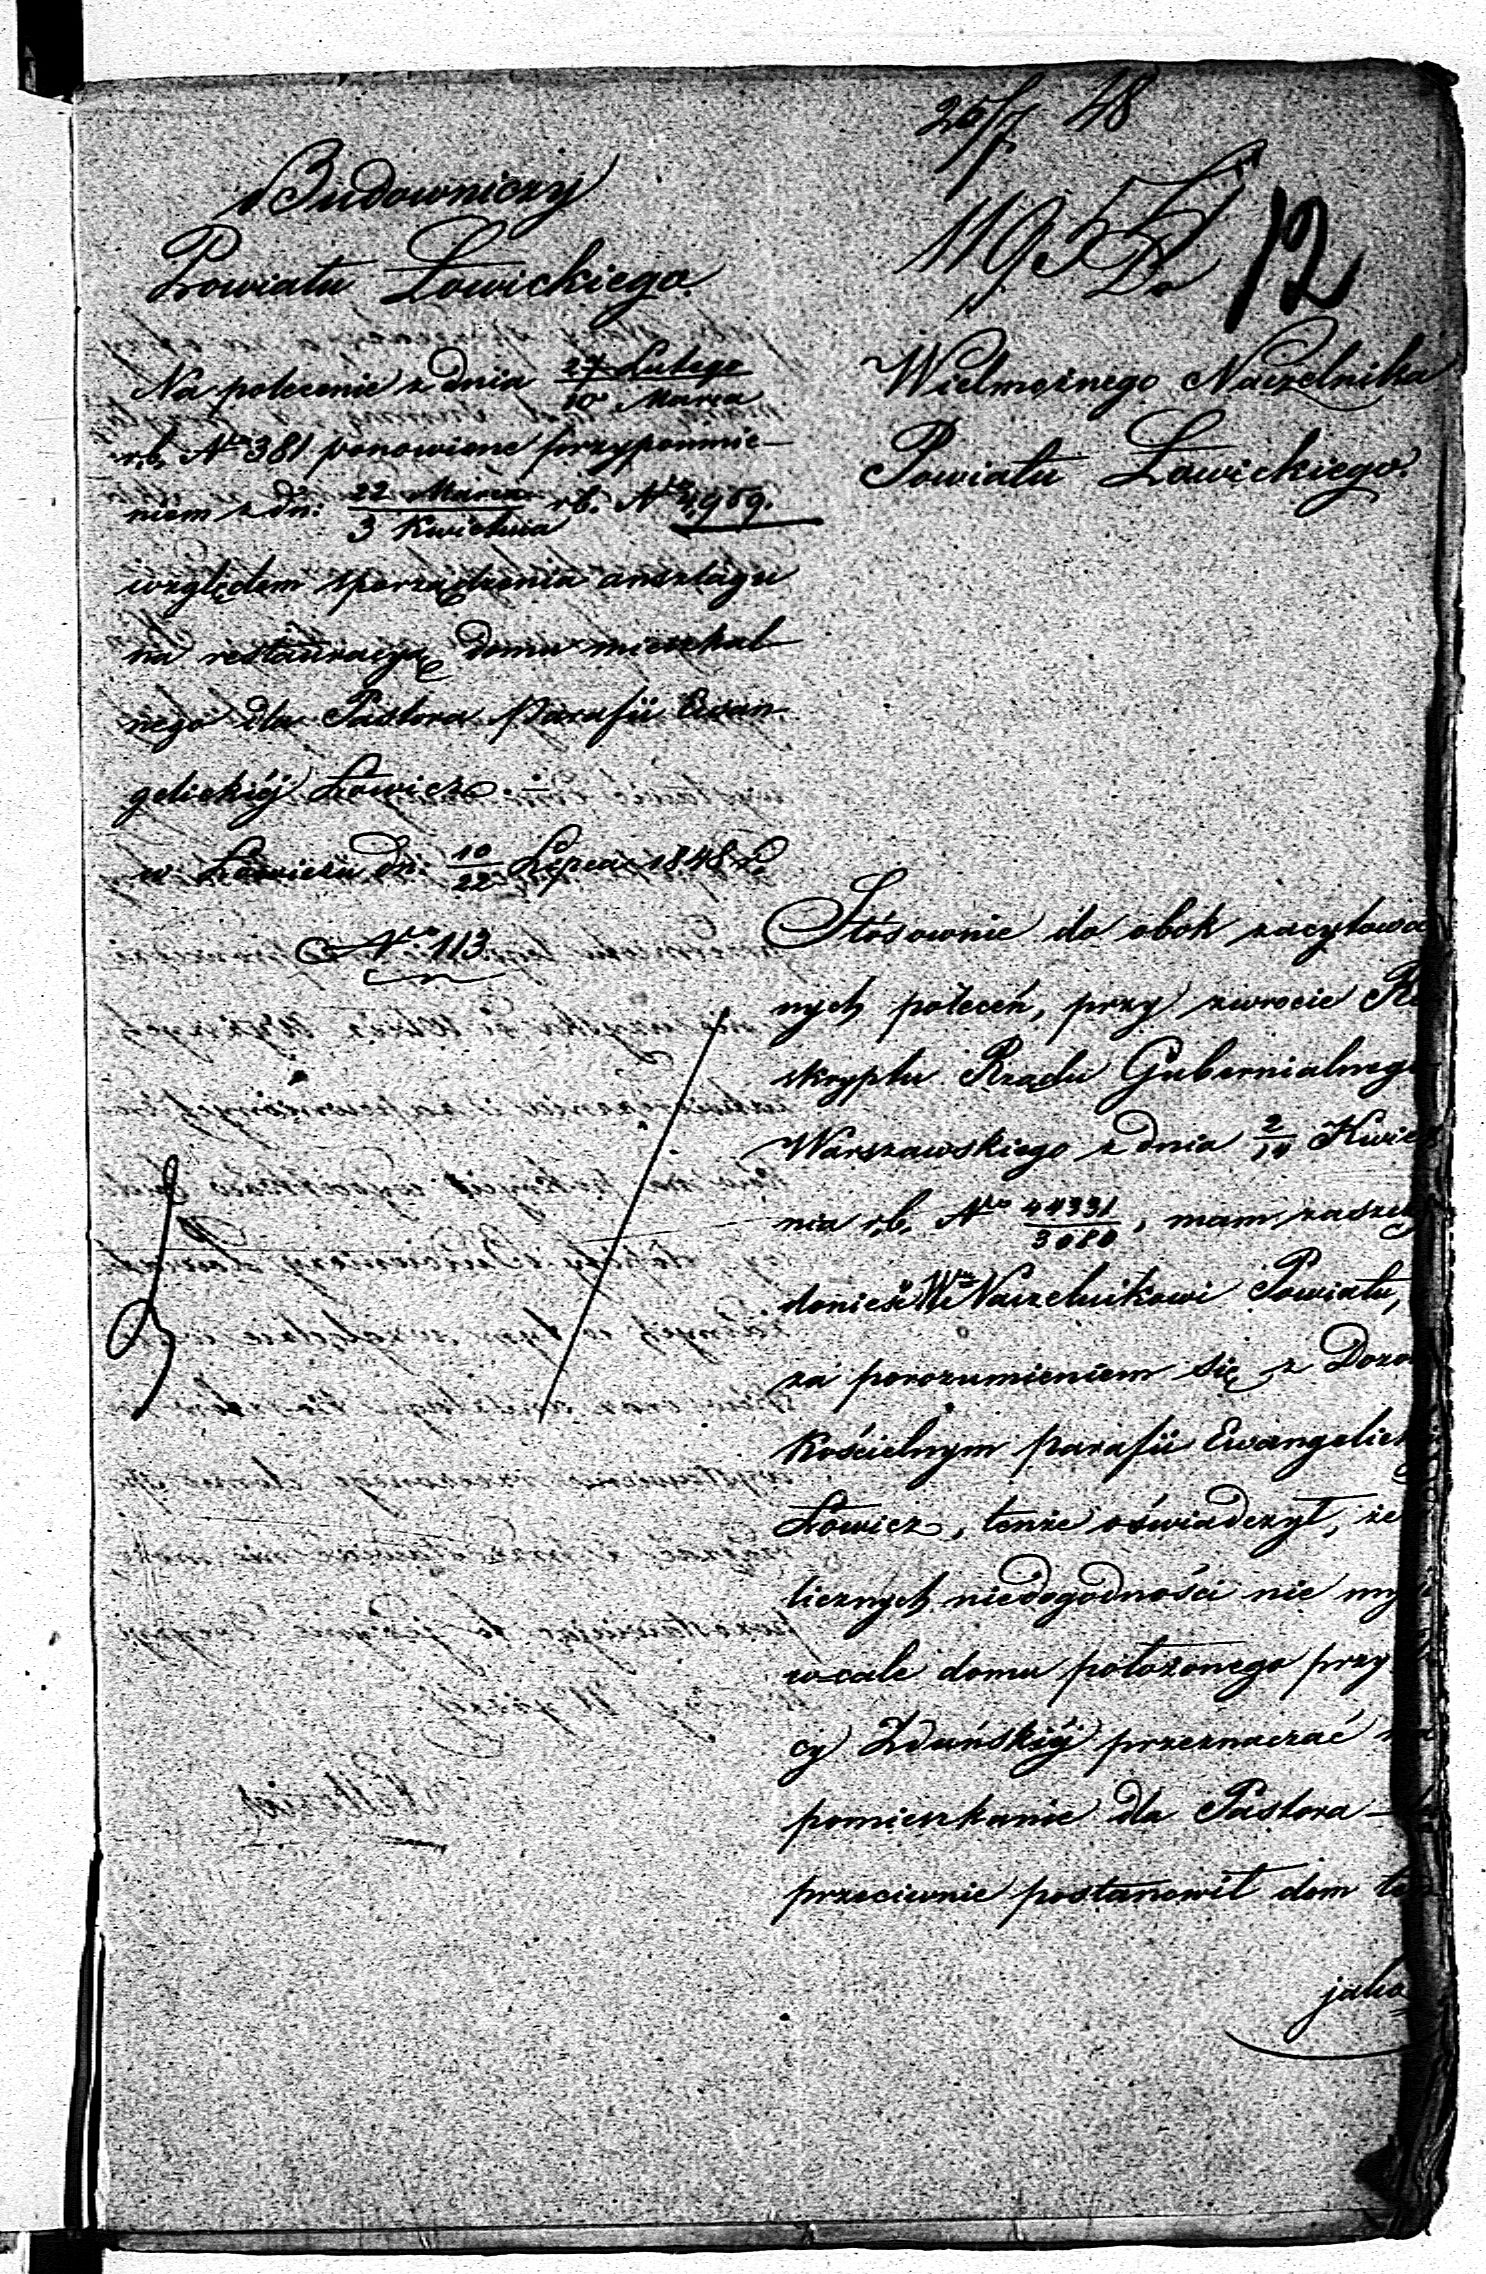 25/7 48
11955
12
Budowniczy
Powiatu Łowickiego.
Na polecenie z dnia 27 Lutego / 10 Marca
r.b. Nro 381 ponowione przypomnie-
niem z dn: 22 Marca / 3 Kwietnia r.b. Nro 4,959.
względem sporządzenia anszlagu
na restauracyą domu mieszkal-
nego dla Pastora Parafii Ewan-
gelickiéj Łowicz.
w Łowiczu dn: 10/22 Lipca 1848 r.
Nro 113.
Do
Wielmożnego Naczelnika
Powiatu Łowickiego.
Stósownie do obok zacytowa
nych poleceń, przy zwrocie Re
skryptu Rządu Gubernialnego
Warszawskiego z dnia 2/14 Kwiet
nia r.b. Nro 44331/3080, mam zaszczyt
donieść W. Naczelnikowi Powiatu,
za porozumieniem się z Dozo
Kościelnym parafii Ewangelick
Łowicz, tenże oświadczył, że
licznych niedogodności nie my
wcale domu położonego przy
cy Zduńskiéj przeznaczać na
pomieszkanie dla Pastora
przeciwnie postanowił dom ten
jako